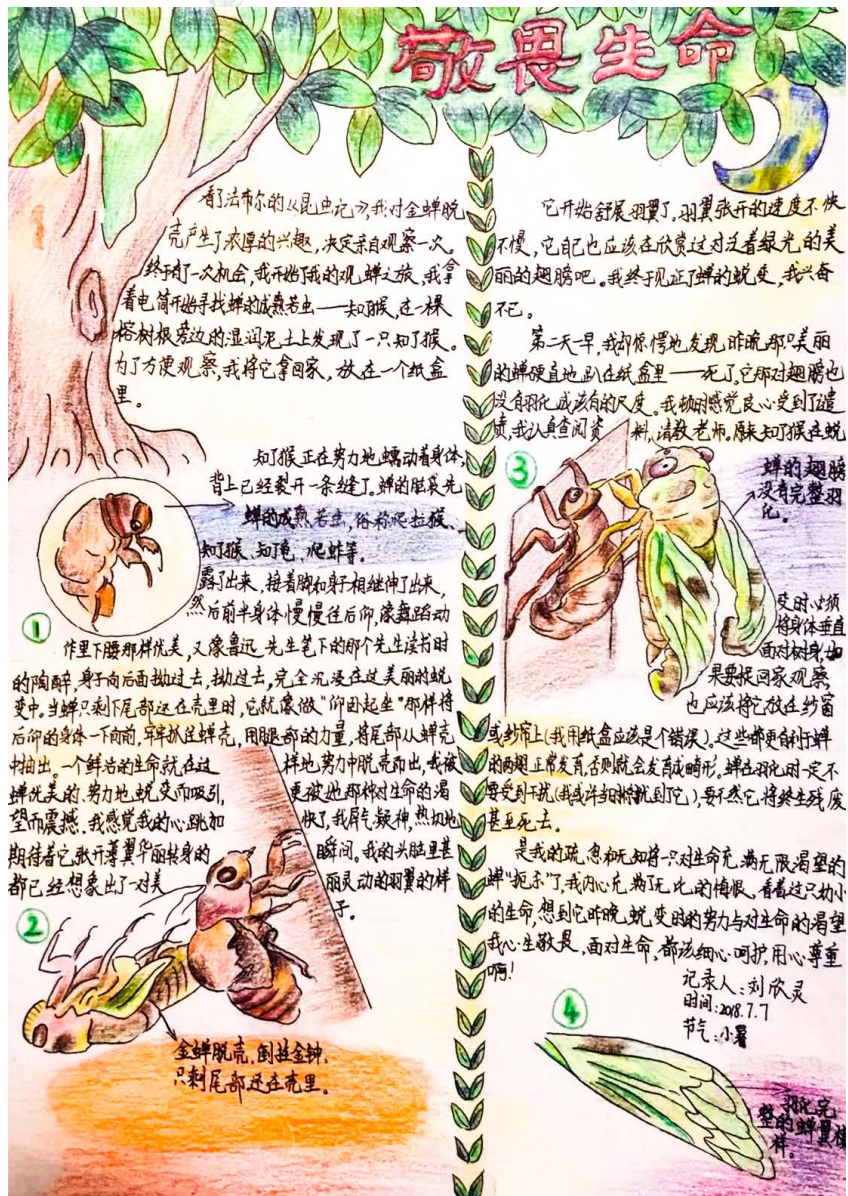 敬畏生命
看了法布尔的《昆虫记》，我对金蝉脱
壳产生了浓厚的兴趣，决定亲自观察一次。
终于有了一次机会，我开始了我的观蝉之旅，我拿
着电筒开始寻找蝉的成熟若虫——知了猴，在一棵
榕树根旁边的湿润泥土上发现了一只知了猴。
为了方便观察，我将它拿回家，放在一个纸盒
里。
知了猴正在努力地蠕动着身体，
背上已经裂开一条缝了。蝉的脑袋先
蝉的成熟若虫，俗称爬拉猴、
知了猴、知了龟、爬蚱等。
露了出来，接着脚和身子相继伸了出来，
然后前半身体慢慢往后仰，像舞蹈动
①
作里下腰那样优美，又像鲁迅先生笔下的那个先生读书时
的陶醉，身子向后面拗过去，拗过去，完全沉浸在这美丽的蜕
变中。当蝉只剩下尾部还在壳里时，它就像做“仰卧起坐”那样将
后仰的身体一下向前，牢牢抓住蝉壳，用腿部的力量，将尾部从蝉壳
中抽出。一个鲜活的生命就在这样地努力中脱壳而出，我被
蝉优美的、努力地蜕变而吸引，更被她那种对生命的渴
望而震撼。我感觉我的心跳加快了，我屏气凝神，热切地
期待着它张开薄翼华丽转身的瞬间。我的头脑里甚
都已经想象出了一对美丽灵动的羽翼的样
子。
②
金蝉脱壳，倒挂金钟，
只剩尾部还在壳里。
它开始舒展羽翼了，羽翼张开的速度不快
不慢，它自己也应该在欣赏这对泛着绿光的美
丽的翅膀吧。我终于见证了蝉的蜕变，我兴奋
不已。
第二天一早，我却惊愕地发现昨晚那只美丽
的蝉硬直地趴在纸盒里——死了，它那对翅膀也
没有羽化成该有的尺度。我顿时感觉良心受到了谴
责，我认真查阅资料，请教老师。原来知了猴在蜕
③
蝉的翅膀
没有完整羽
化。
变时必须
将身体垂直
面对树身，如
果要捉回家观察，
也应该将它放在纱窗
或纱帘上（我用纸盒应该是个错误）。这些都更有利于蝉
的两翅正常发育，否则就会发育成畸形。蝉在羽化时一定不
要受到干扰（我或许打扰到了它），要不然它将终生残废
甚至死去。
是我的疏忽和无知将一只对生命充满无限渴望的
蝉“扼杀”了，我内心充满了无比的悔恨。看着这只幼小
的生命，想到它昨晚蜕变时的努力与对生命的渴望
我心生敬畏，面对生命，都该细心呵护，用心尊重
啊！
记录人：刘欣灵
时间：2018.7.7
节气：小暑
④
羽化完
整的蝉翼模
样。